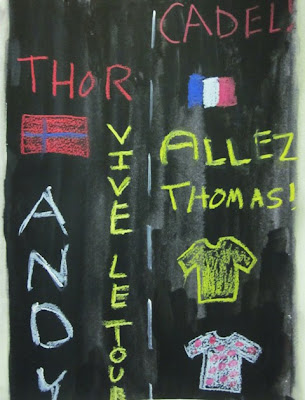 CADEL!
THOR
VIVE LE TOUR
ALLEZ
THOMAS!
ANDY